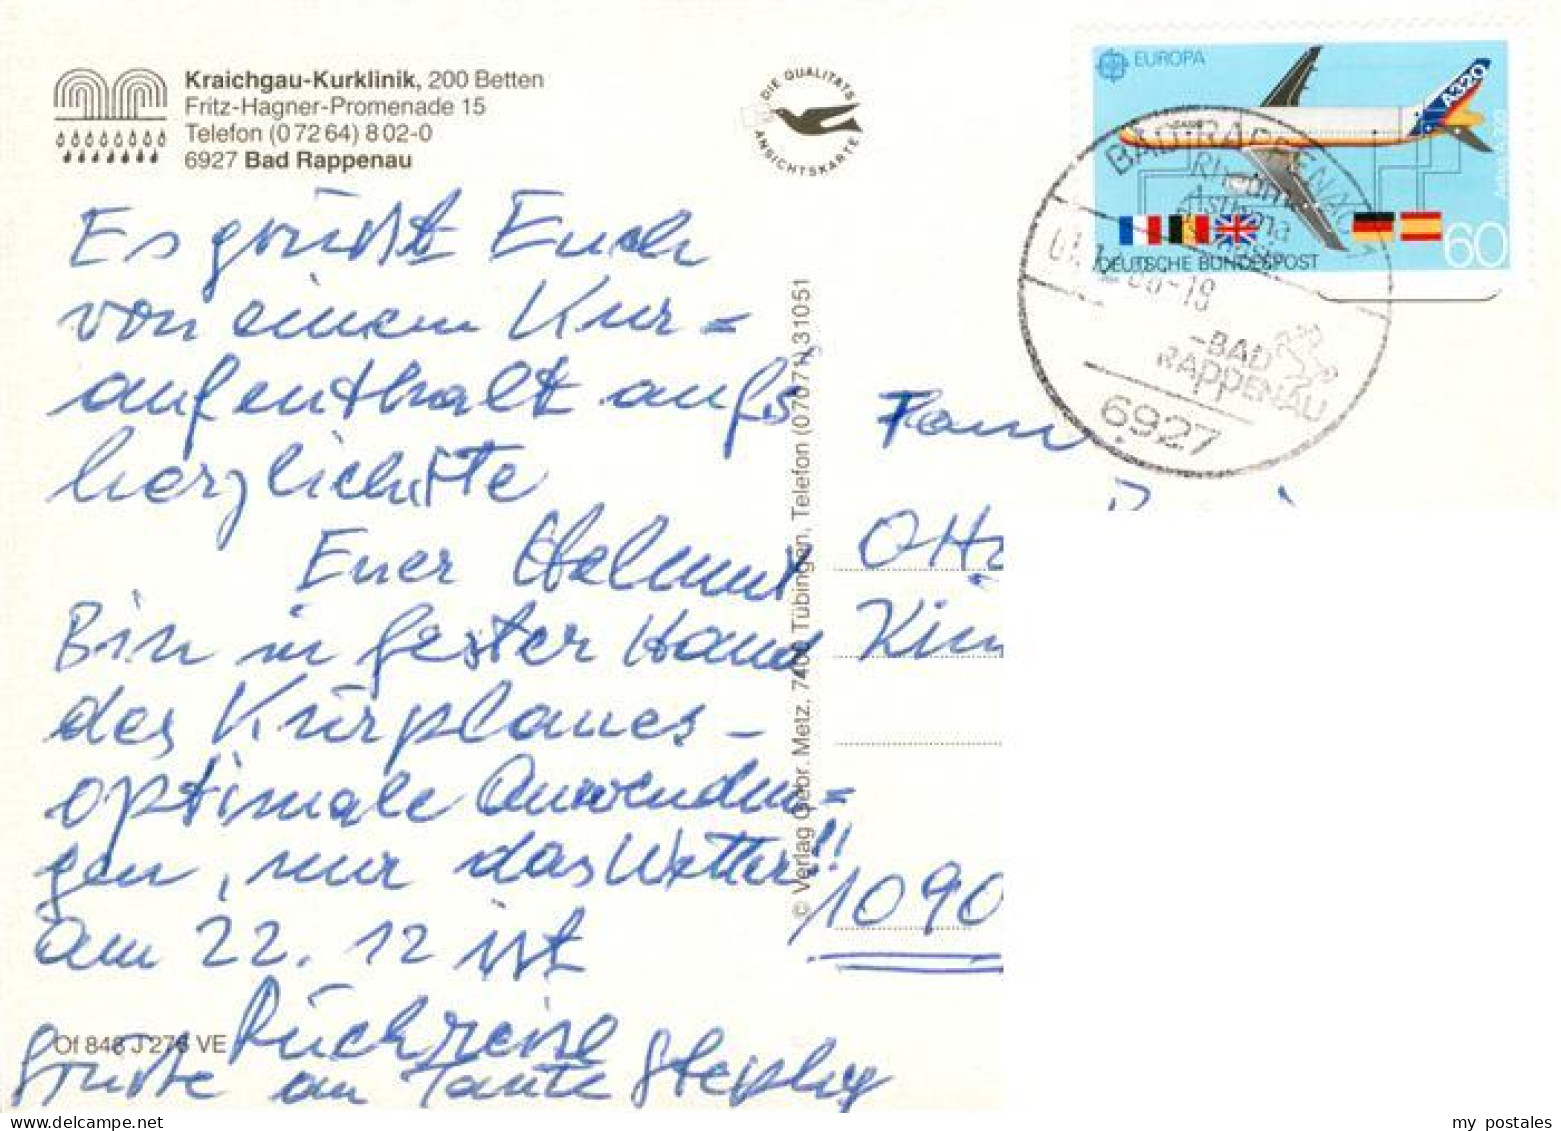 Kraichgau-Kurklinik, 200 Betten
Fritz-Hagner-Promenade 15
Telefon (0 72 64) 8 02-0
6927 Bad Rappenau
DIE QUALITÄTS
ANSICHTSKARTE
EUROPA
A320
60
DEUTSCHE BUNDESPOST
BAD RAPPENAU 1
Rheuma
Asthma
-18
-BAD
RAPPENAU
6927
Es grüßt Euch
von einem Kur=
aufenthalt aufs
herzlichste
Euer Helmut
Bin in fester Hand
des Kurplanes -
optimale Anwendun=
gen, nur das Wetter!!
am 22. 12 ist
Rückreise
Grüße an Tante Stephy
Of 848 J 276 VE
© Verlag Gebr. Metz, 7400 Tübingen, Telefon (07071) 31051
Fam
Otto
1090
my postales